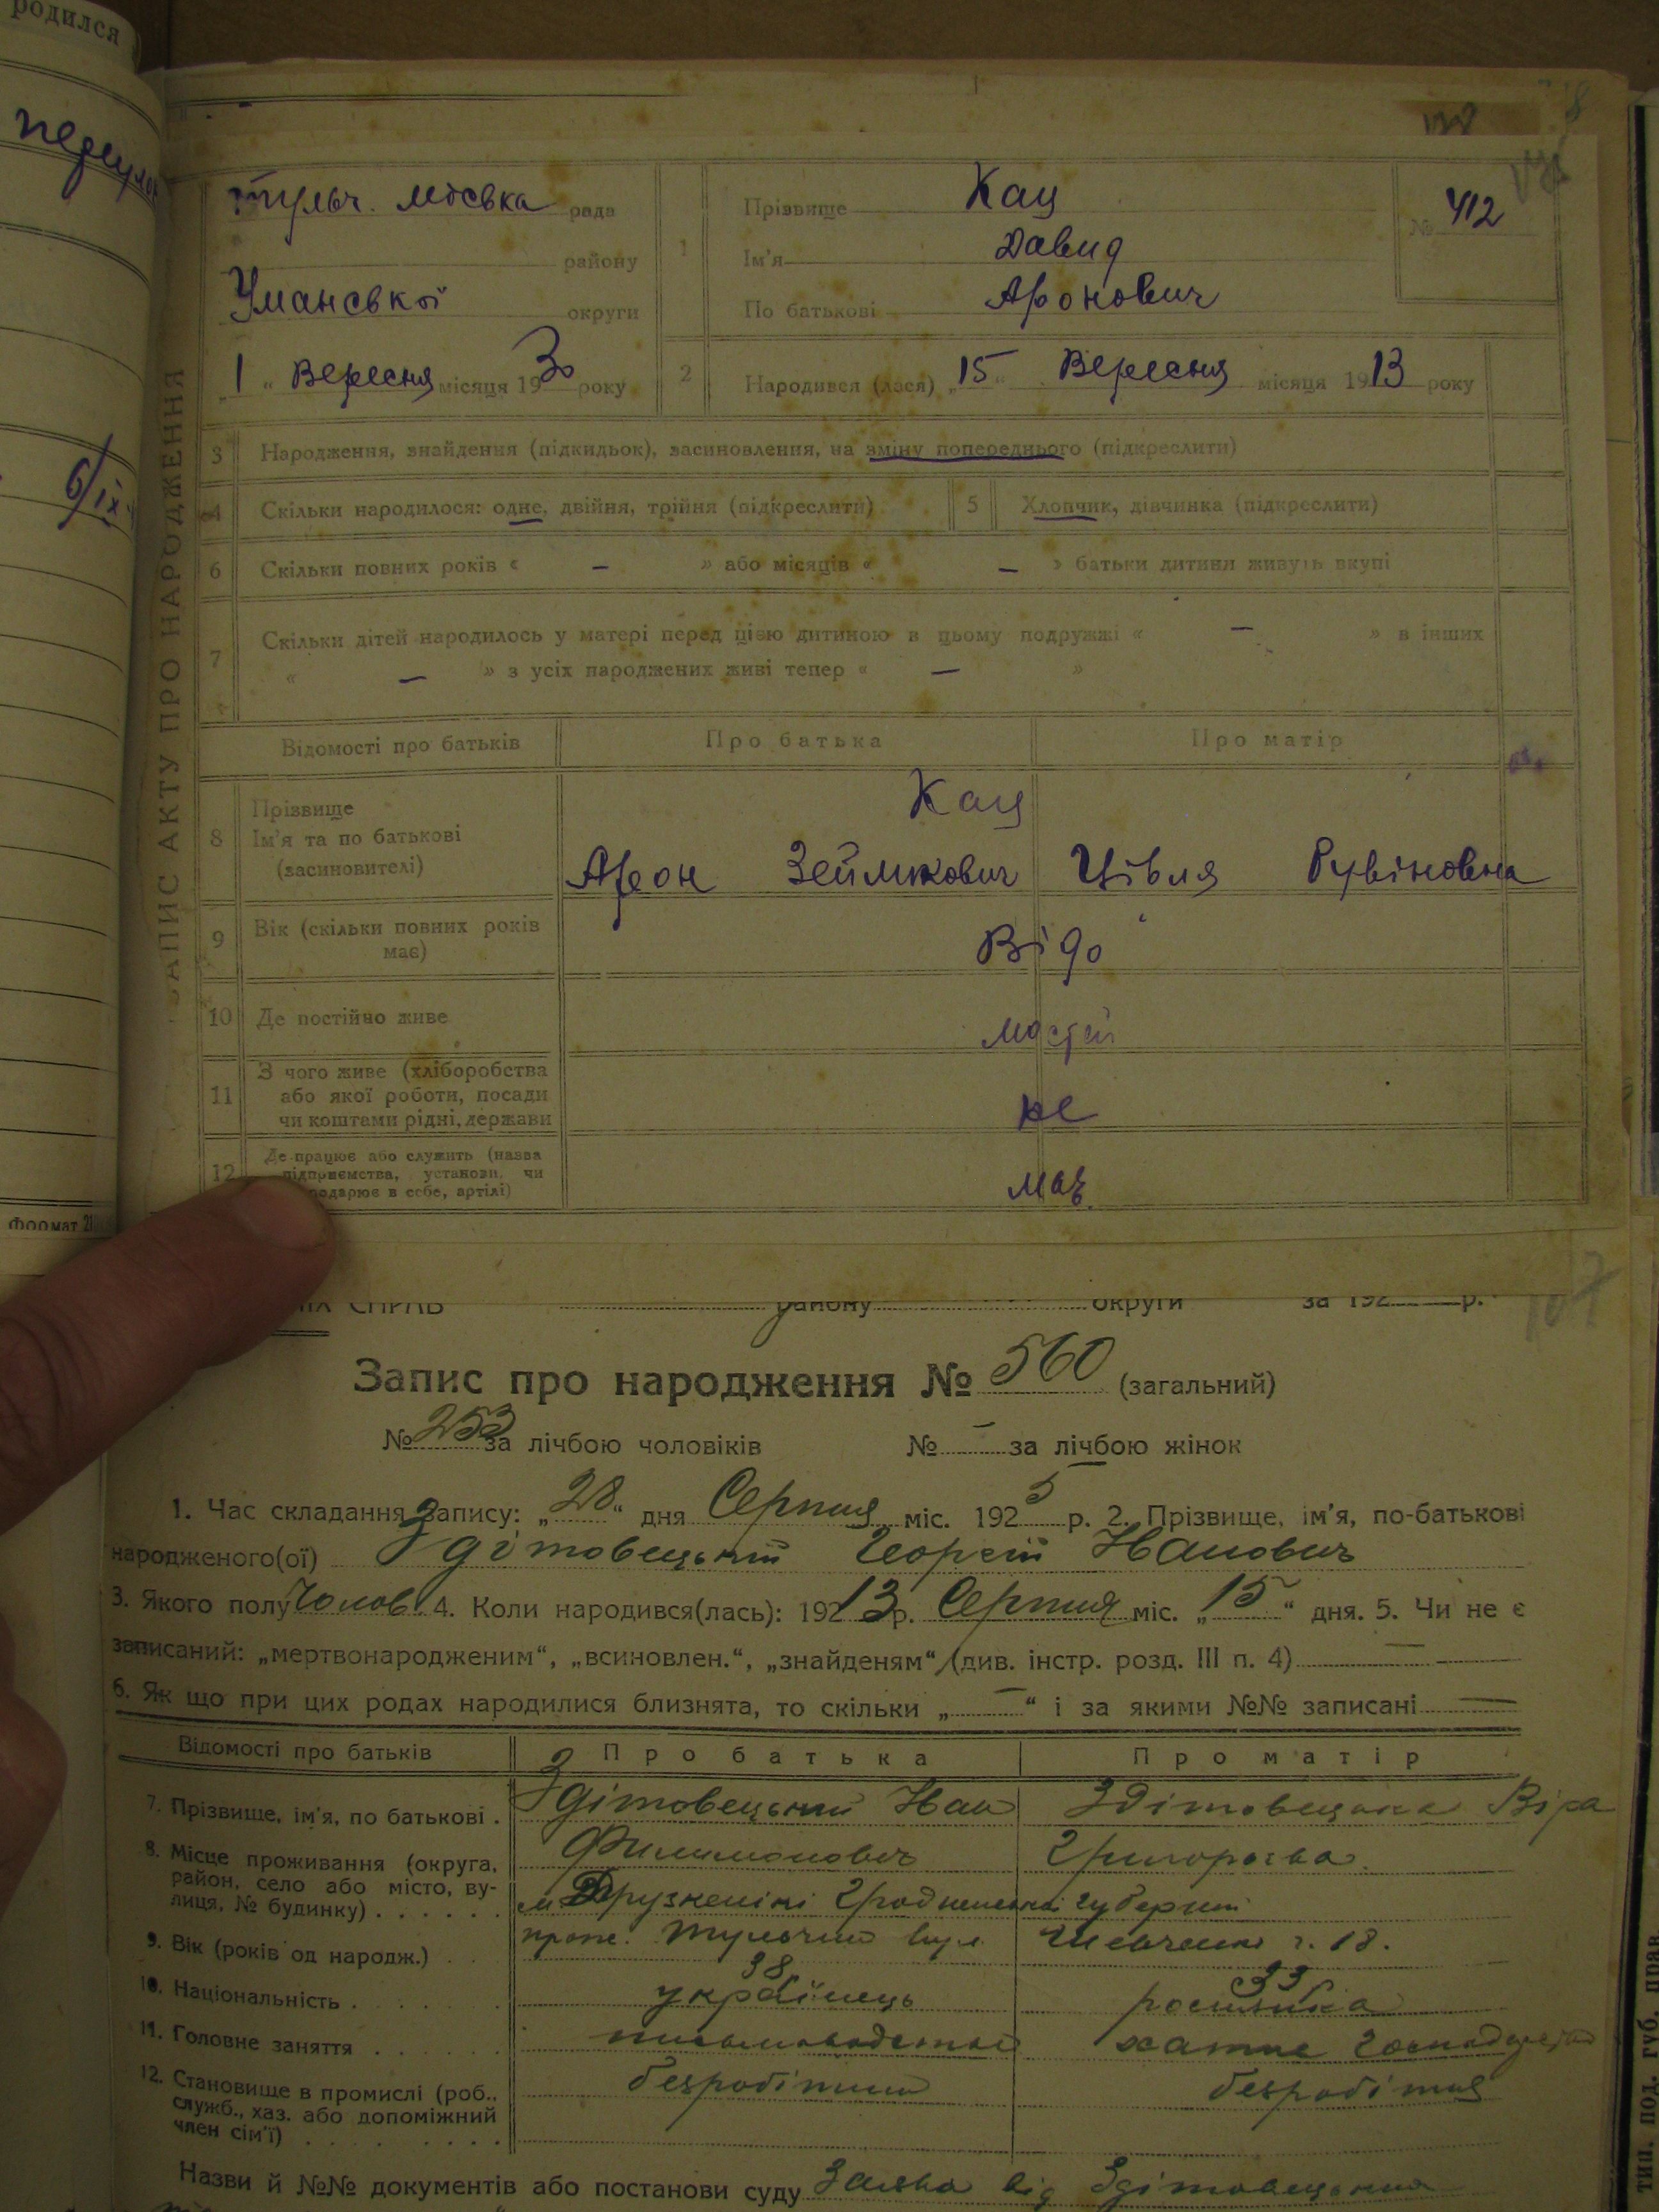 родился
6/ix
Формат
ЗАПИС АКТУ ПРО НАРОДЖЕННЯ
Тульч. міська рада
району
Уманської округи
„1“ Вересня місяця 1930 року
1 Прізвище Кац
Ім'я Давид
По батькові Аронович
№ 412
2 Народився (лася) „15“ Вересня місяця 1913 року
3 Народження, знайдення (підкидьок), засиновлення, на зміну попереднього (підкреслити)
4 Скільки народилося: одне, двійня, трійня (підкреслити) 5 Хлопчик, дівчинка (підкреслити)
6 Скільки повних років « – » або місяців « – » батьки дитини живуть вкупі
7 Скільки дітей народилось у матері перед цією дитиною в цьому подружжі « – » в інших
« – » з усіх народжених живі тепер « – »
Відомості про батьків Про батька Про матір
8 Прізвище
Ім'я та по батькові
(засиновителі)
Кац
Арон Зейликович Цівля Рувіновна
9 Вік (скільки повних років
має)
Відо
10 Де постійно живе
мостей
11 З чого живе (хліборобства
або якої роботи, посади
чи коштами рідні, держави
не
12 Де працює або служить (назва
підприємства, установи, чи
господарює в себе, артілі)
має
району округи за 192 р.
107
Запис про народження № 560 (загальний)
№ 253 за лічбою чоловіків № – за лічбою жінок
1. Час складання запису: „28“ дня Серпня міс. 1925 р. 2. Прізвище, ім'я, по-батькові
народженого(ої) Здітовецький Георгій Іванович
3. Якого полу чолов. 4. Коли народився(лась): 19213 р. Серпня міс. „15“ дня. 5. Чи не є
записаний: „мертвонародженим“, „всиновлен.“, „знайденям“ (див. інстр. розд. III п. 4) —
6. Як що при цих родах народилися близнята, то скільки „–“ і за якими №№ записані —
Відомості про батьків Про батька Про матір
7. Прізвище, ім'я, по батькові . Здітовецький Іван Здітовецька Віра
Филимонович Григорьєва
8. Місце проживання (округа,
район, село або місто, ву-
лиця, № будинку) . . . . . .
м. Друзкенікі Гродненської губернії
прож. Тульчин вул. Шевченка ч. 18.
9. Вік (років од народж.) . . 38 33
10. Національність . . . . . українець росіянка
11. Головне заняття . . . . . письмоводство хатнє господарство
12. Становище в промислі (роб.,
служб., хаз. або допоміжний
член сім'ї) . . . . . . .
безробітний безробітня
Назви й №№ документів або постанови суду Заява від Здітовецького
тип. под. губ. прав